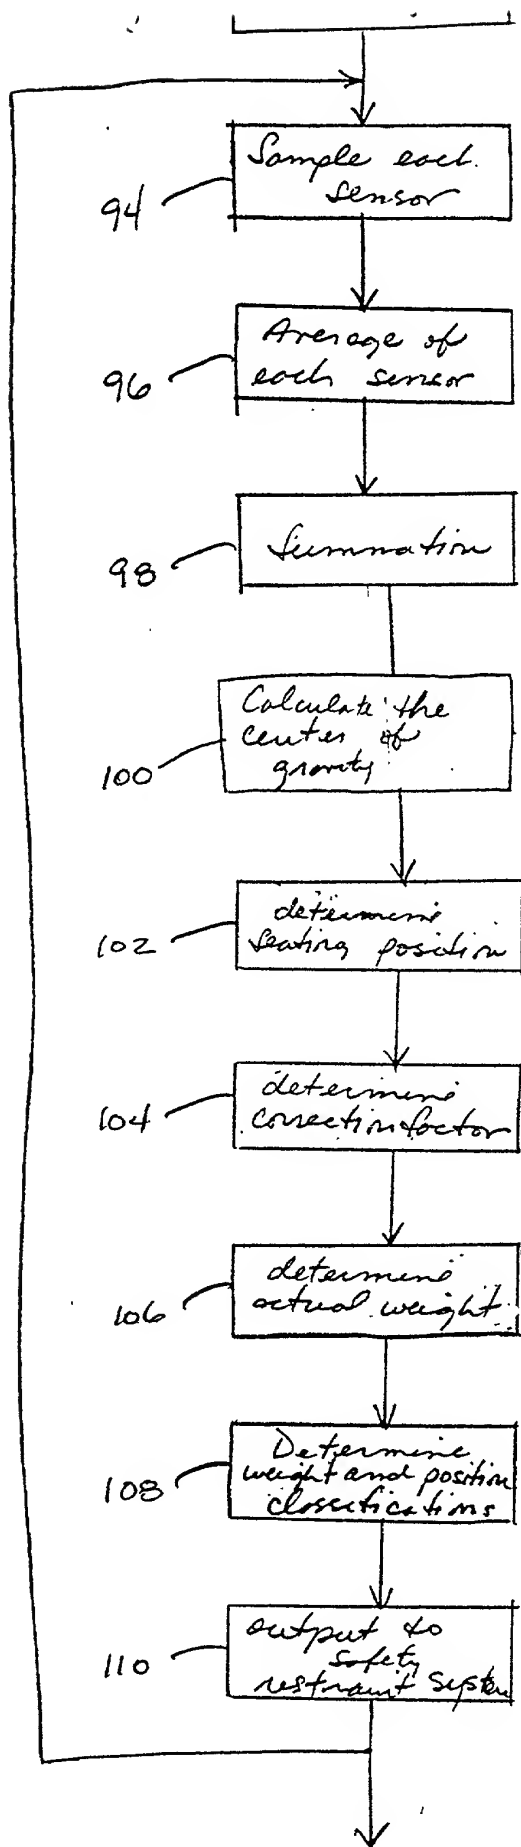 Sample each
sensor
94
Average of
each sensor
96
Summation
98
Calculate the
center of
gravity
100
determine
seating position
102
determine
correction factor
104
determine
actual weight
106
Determine
weight and position
classifications
108
output to
safety
restraint system
110